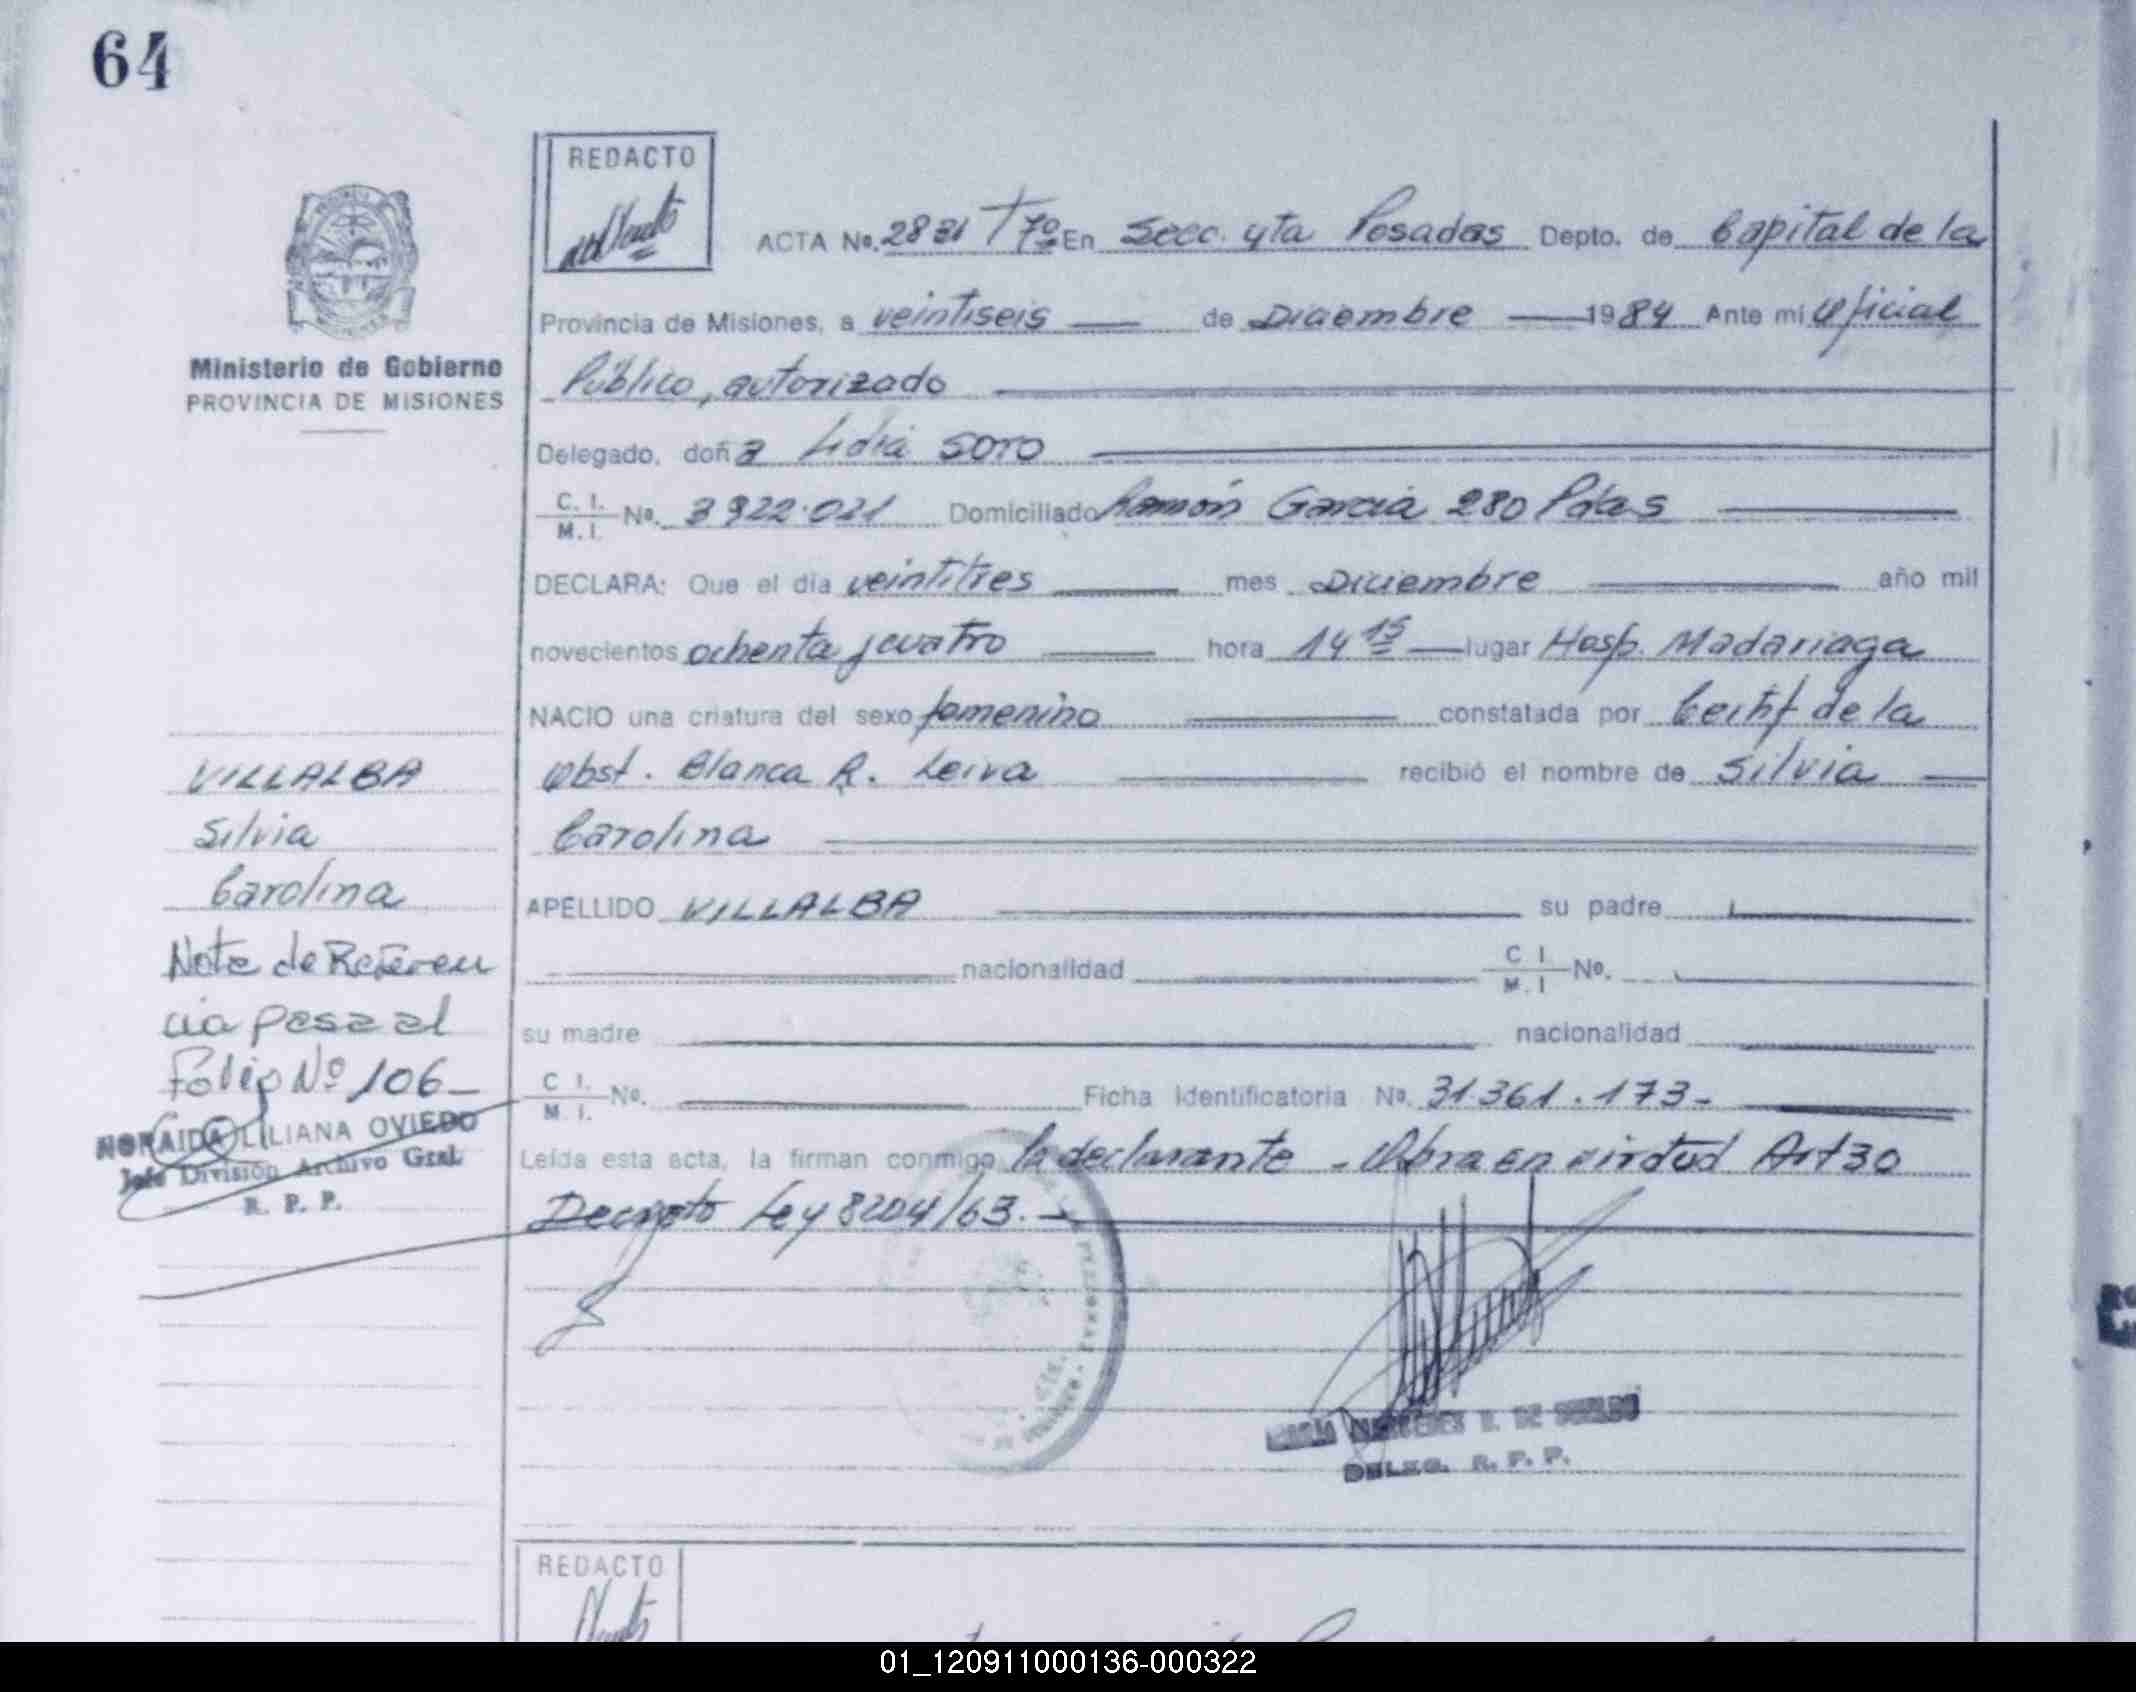 64
REDACTO
ACTA No. 2831 T 7º En Secc. 4ta Posadas Depto. de Capital de la
Provincia de Misiones, a veintiseis de Diciembre 1984 Ante mi Oficial
Público, autorizado
Ministerio de Gobierno
PROVINCIA DE MISIONES
Delegado, doña Lidia SOTO
C. I.
M. I.
No. 3922.021 Domiciliado Ramón Garcia 280 Pdas
DECLARA: Que el día veintitres mes Diciembre año mil
novecientos ochenta y cuatro hora 14 15 lugar Hosp. Madariaga
NACIO una criatura del sexo femenino constatada por Certif de la
Obst. Blanca R. Leiva recibió el nombre de Silvia
Carolina
APELLIDO VILLALBA su padre
nacionalidad C. I. M. I No.
su madre nacionalidad
C. I. M. I. No. Ficha Identificatoria No. 31.361.173-
Leída esta acta, la firman conmigo la declarante - Obra en virtud Art 30
Decreto Ley 8204/63.-
VILLALBA
Silvia
Carolina
Nota de Referen
cia pasa al
Folio Nº 106-
NORAIDA LILIANA OVIEDO
Jefe División Archivo Gral.
R. P. P.
DELEG. R. P. P.
REDACTO
01_120911000136-000322